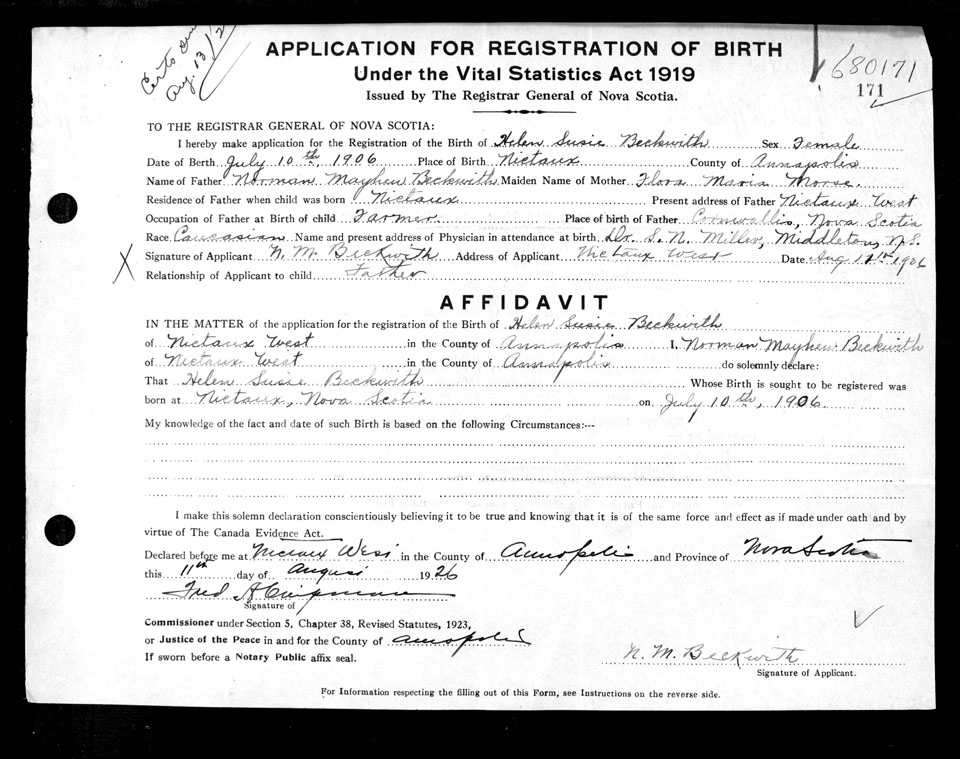 Certs
Aug. 13/2
APPLICATION FOR REGISTRATION OF BIRTH
Under the Vital Statistics Act 1919
Issued by The Registrar General of Nova Scotia.
680171
171
TO THE REGISTRAR GENERAL OF NOVA SCOTIA:
I hereby make application for the Registration of the Birth of Helen Susie Beckwith Sex Female
Date of Birth July 10th, 1906 Place of Birth Nictaux County of Annapolis
Name of Father Norman Mayhew Beckwith Maiden Name of Mother Flora Maria Morse.
Residence of Father when child was born Nictaux Present address of Father Nictaux West
Occupation of Father at Birth of child Farmer. Place of birth of Father Cornwallis, Nova Scotia
Race Caucasian Name and present address of Physician in attendance at birth Dr. S. N. Miller, Middleton, N.S.
X Signature of Applicant N. M. Beckwith Address of Applicant Nictaux West Date Aug 11th 1906
Relationship of Applicant to child Father
AFFIDAVIT
IN THE MATTER of the application for the registration of the Birth of Helen Susie Beckwith
of Nictaux West in the County of Annapolis I, Norman Mayhew Beckwith
of Nictaux West in the County of Annapolis do solemnly declare:
That Helen Susie Beckwith Whose Birth is sought to be registered was
born at Nictaux, Nova Scotia on July 10th, 1906.
My knowledge of the fact and date of such Birth is based on the following Circumstances:--
I make this solemn declaration conscientiously believing it to be true and knowing that it is of the same force and effect as if made under oath and by
virtue of The Canada Evidence Act.
Declared before me at Nictaux West in the County of Annapolis and Province of Nova Scotia
this 11th day of August 1926
Fred A Chipman
Signature of
Commissioner under Section 5, Chapter 38, Revised Statutes, 1923,
or Justice of the Peace in and for the County of Annapolis
If sworn before a Notary Public affix seal.
N. M. Beckwith
Signature of Applicant.
For Information respecting the filling out of this Form, see Instructions on the reverse side.